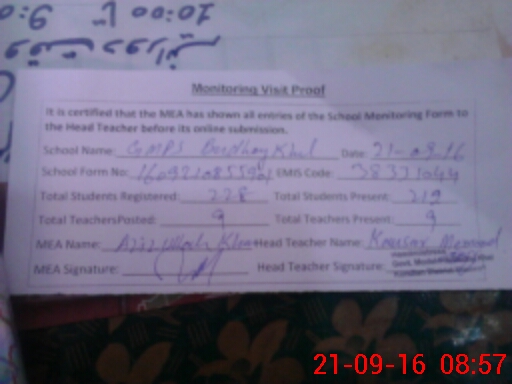 10:00 9:0
Monitoring Visit Proof
It is certified that the MEA has shown all entries of the School Monitoring Form to
the Head Teacher before its online submission.
School Name: GMPS Khel Date: 21-09-16
School Form No: EMIS Code: 38331044
Total Students Registered: 228 Total Students Present: 219
Total TeachersPosted: 9 Total Teachers Present: 9
MEA Name: Azizullah Khan Head Teacher Name: Kausar
MEA Signature: Head Teacher Signature:
21-09-16 08:57